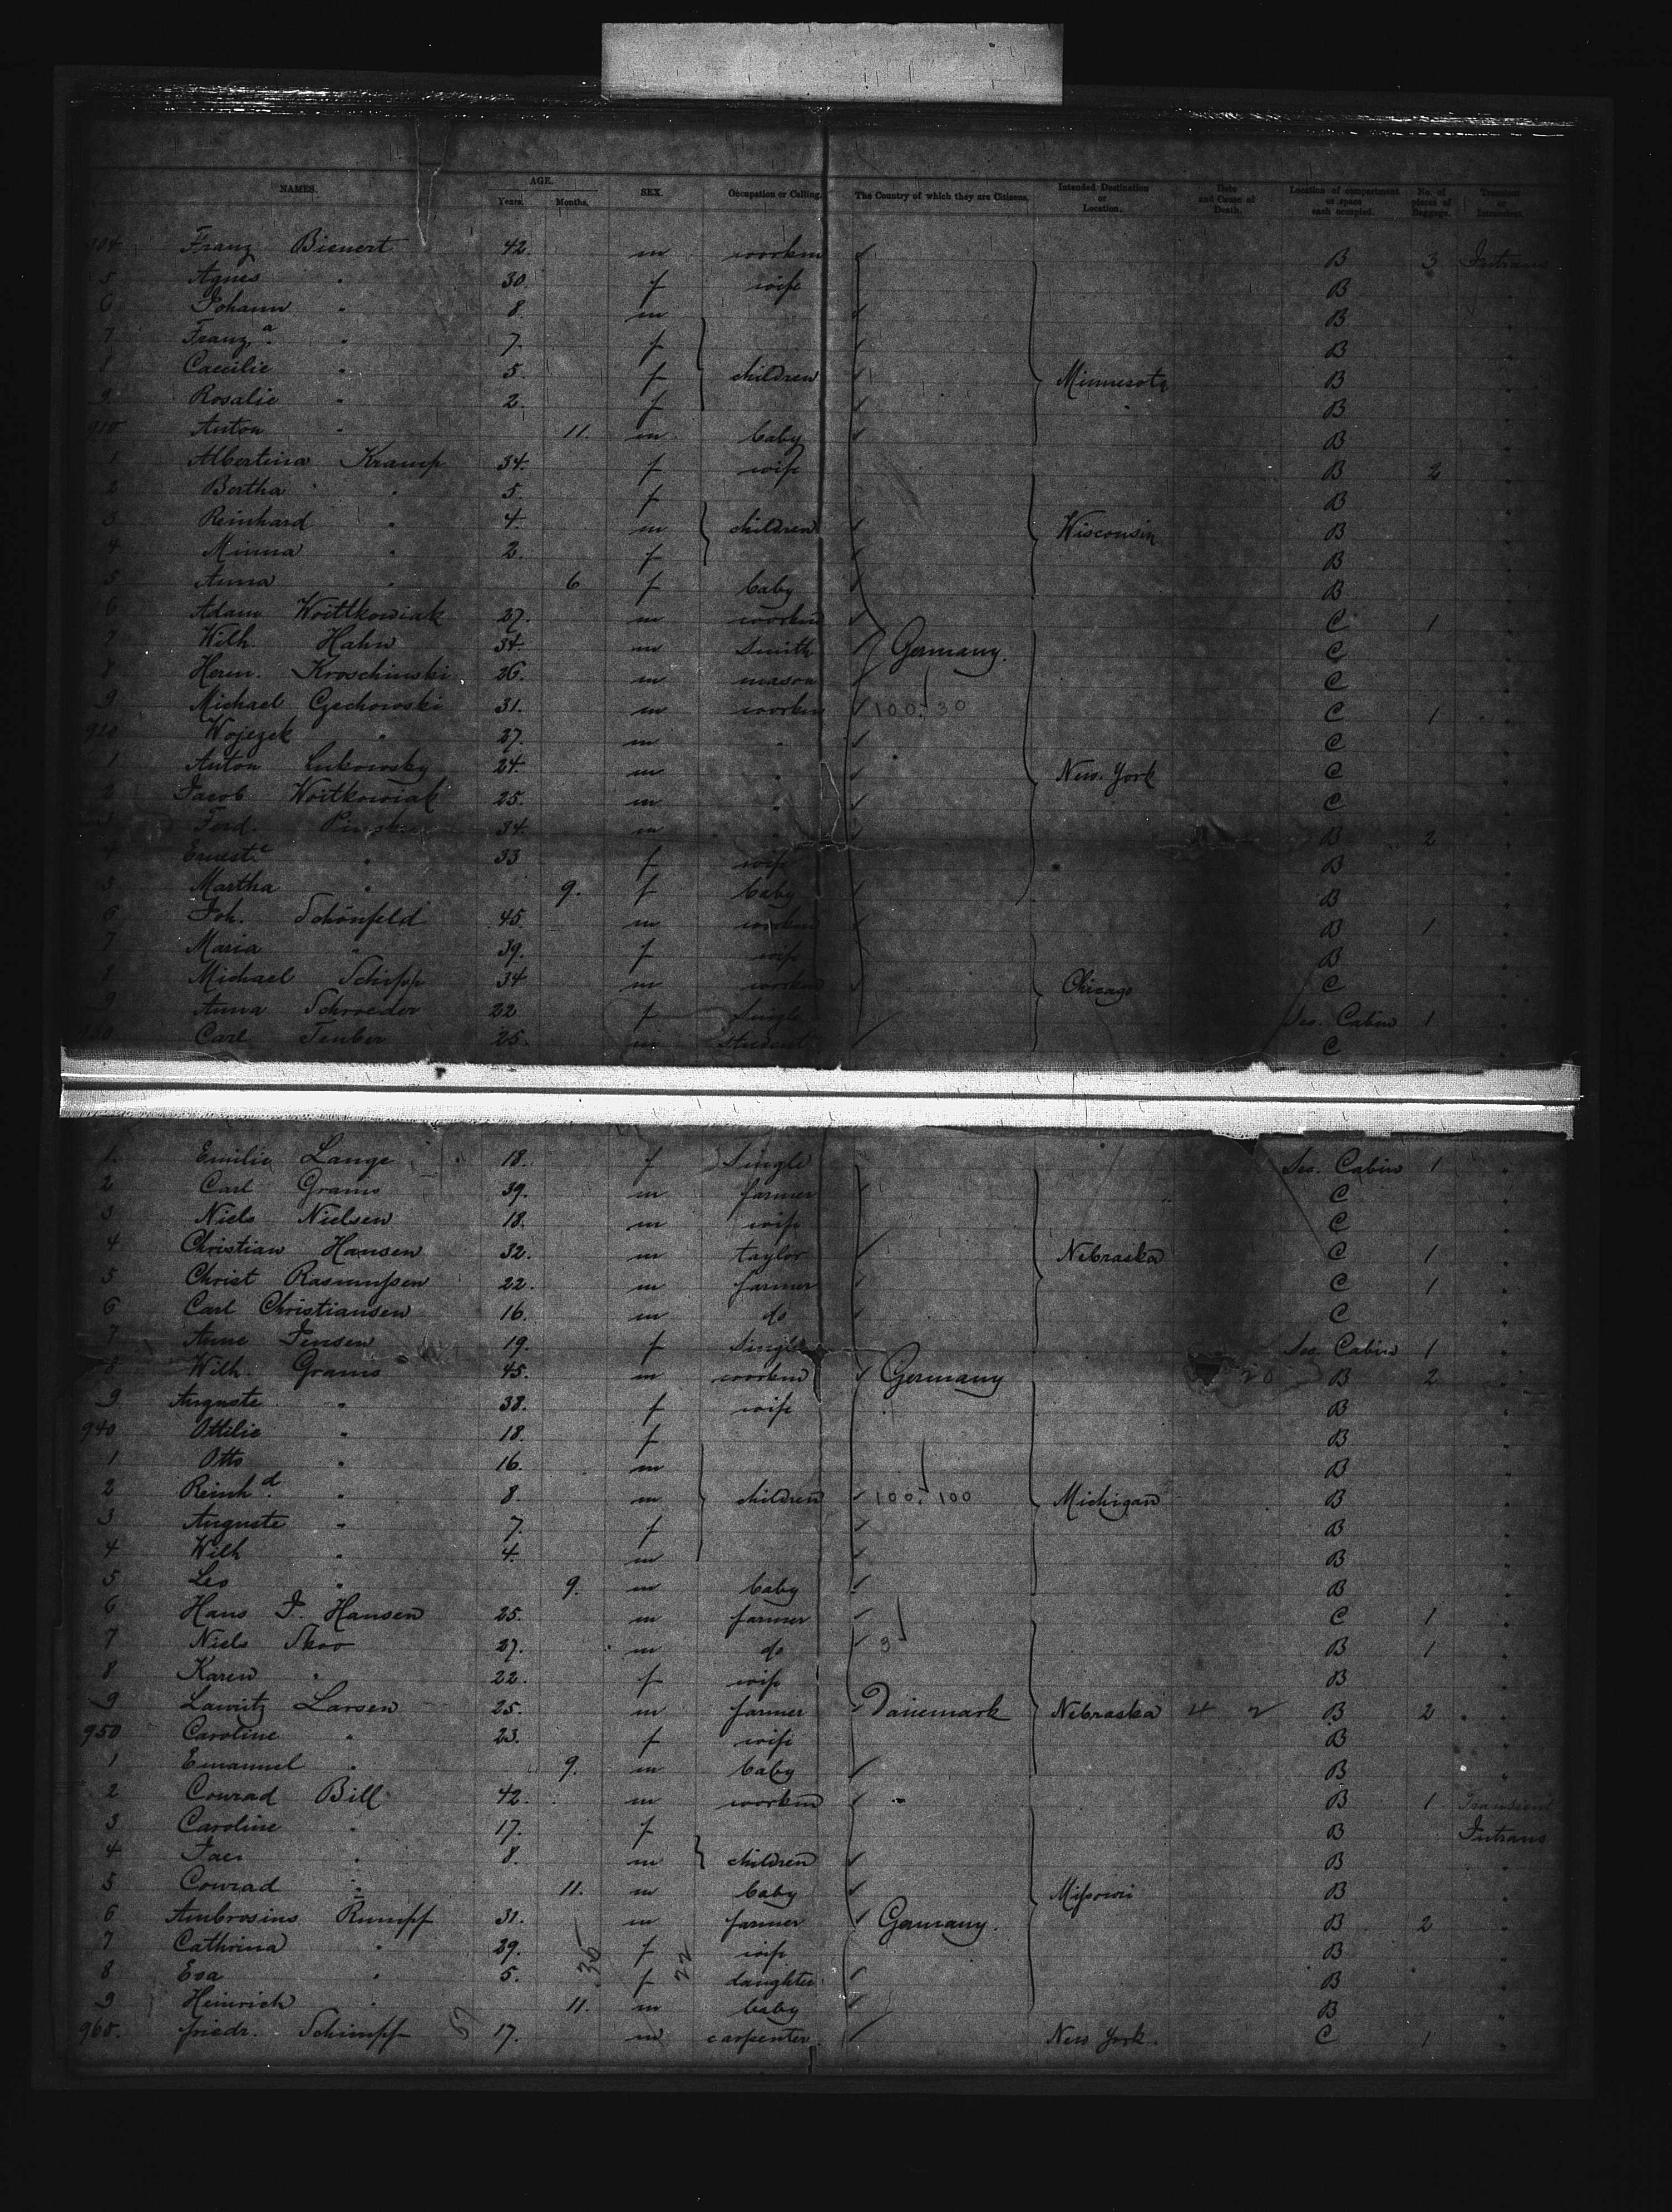 NAMES. AGE. Years. Months. SEX. Occupation or Calling. The Country of which they are Citizens. Intended Destination or Location. Date and Cause of Death. Location of compartment or space each occupied. No. of pieces of Baggage. Transient or Intransient.
904 Franz Bienert 42. m workm B 3 Intrans
5 Agnes " 30. f wife B "
6 Johann " 8. m B "
7 Franz.a " 7. f B "
8 Caecilie " 5. f children Minnesota B "
9 Rosalie " 2. f B "
910 Anton " 11. m baby B "
1 Albertina Kramp 34. f wife B 2 "
2 Bertha " 5. f B "
3 Reinhard " 4. m children Wisconsin B "
4 Minna " 2. f B "
5 Anna " 6 f baby B "
6 Adam Woittkowiak 27. m workm C 1 "
7 Wilh. Hahn 34. m Smith Germany. C "
8 Herm. Kroschinski 26. m mason C "
9 Michael Czechowski 31. m workm 100. 30 C 1 "
920 Wojezek " 27. m " C "
1 Anton Lukowsky 24. m " New York C "
2 Jacob Woitkowiak 25. m " C "
3 Ferd. 34. m " B 2 "
4 Ernest.e " 33 f wife B "
5 Martha " 9. f baby B "
6 Joh. Schönfeld 45. m workm B 1 "
7 Maria " 39. f wife B "
8 Michael Schipp 34 m workm Chicago C "
9 Anna Schroeder 22 f Single Sec. Cabin 1 "
930 Carl Teuber 25. m student C "
1. Emilie Lange 18. f Single Sec. Cabin 1 "
2 Carl Grams 39. m farmer C "
3 Niels Nielsen 18. m wife C "
4 Christian Hansen 32. m taylor Nebraska C 1 "
5 Christ Rasmussen 22. m farmer C 1 "
6 Carl Christiansen 16. m do C "
7 Anne Jensen 19. f Single Sec. Cabin 1 "
8 Wilh. Grams 45. m workm Germany 20 B 2 "
9 Auguste " 38. f wife B "
940 Ottilie " 18. f B "
1 Otto " 16. m B "
2 Reinh.d " 8. m children 100. 100 Michigan B "
3 Auguste " 7. f B "
4 Wilh " 4. m B "
5 Leo " 9. m baby B "
6 Hans J. Hansen 25. m farmer C 1 "
7 Niels Skoo 27. m do 3 B 1 "
8 Karen " 22. f wife B "
9 Lauritz Larsen 25. m farmer Danemark Nebraska 4 2 B 2 "
950 Caroline " 23. f wife B "
1 Emanuel " 9. m baby B "
2 Conrad Bill 42. m workm " B 1 Transient
3 Caroline " 17. f B Intrans
4 " 8. m children B "
5 Conrad " 11. m baby Missouri B "
6 Ambrosius Rumpf 31. m farmer Germany. B 2 "
7 Cathrina " 29. f wife B "
8 Eva " 5. f daughter B "
9 Heinrich " 11. m baby B "
960. friedr. Schimpf 17. m carpenter New York. C 1 "
36
22